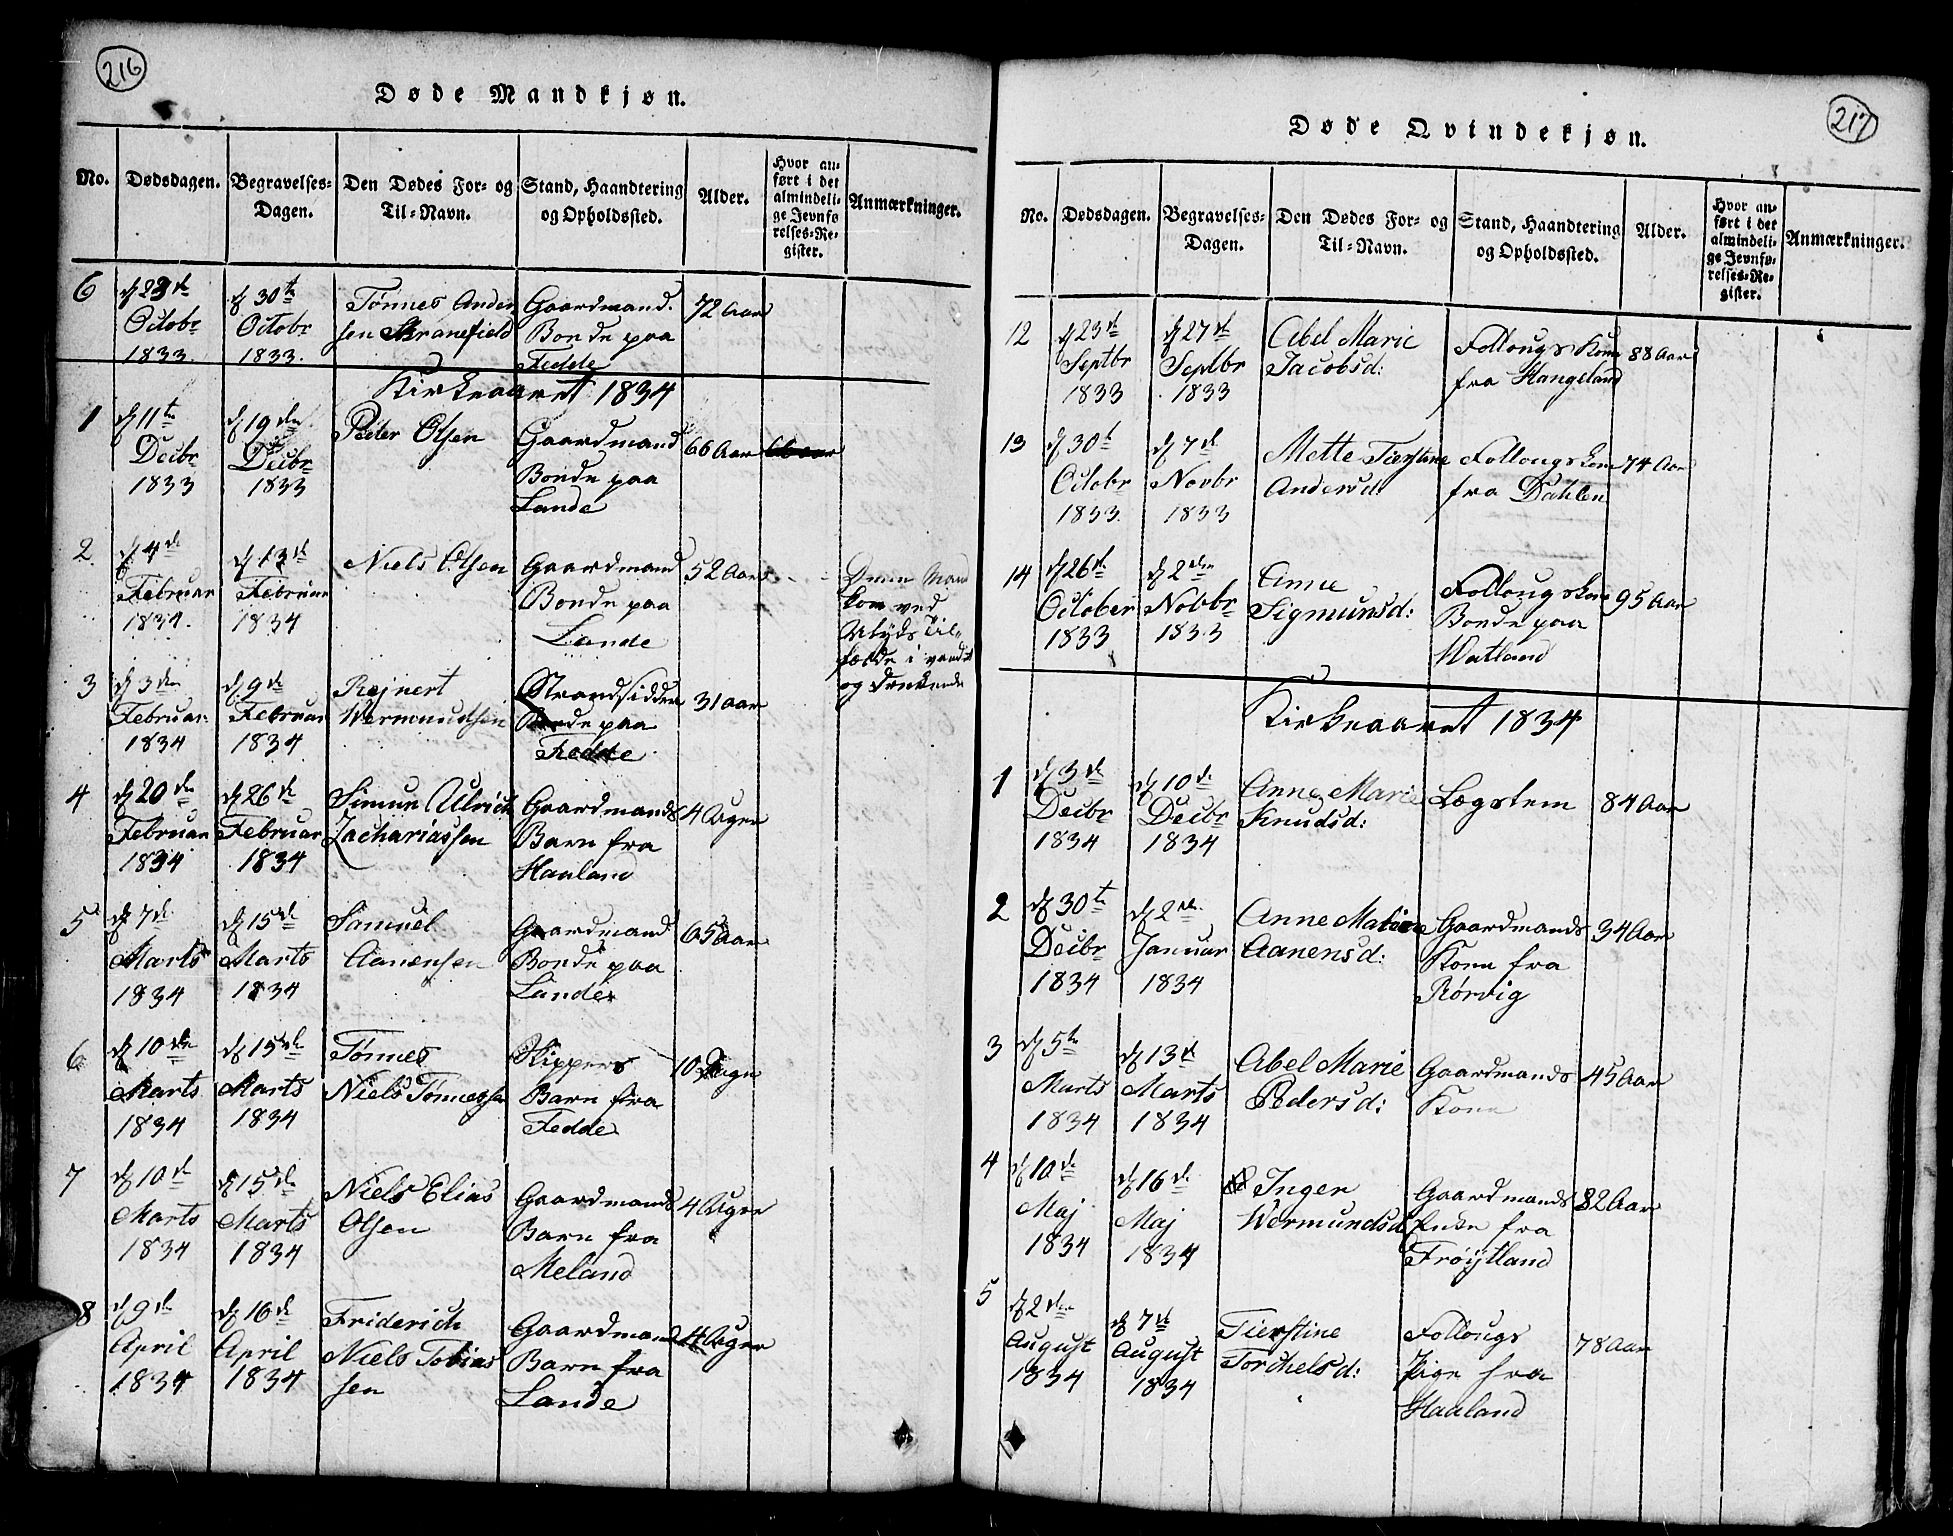 216
Døde Mandkjøn.
No. Dødsdagen. Begravelses-Dagen. Den Dødes For- og Til-Navn. Stand, Haandtering og Opholdssted. Alder. Hvor anført i det almindelige Jevnførelses-Register. Anmærkninger.
6 d 23de d 30te Tønnes Ander Gaardmand. 72 Aar
Octobr Octobr sen Stranefield Bonde paa
1833. 1833. Fedde
Kirkeaaret 1834
1 d 11te d 19den Peter Olsen Gaardmand 66 Aar
Decbr Decbr Bonde paa
1833 1833 Lande
2. d 4de d 13de Niels Olsen Gaardmand 52 Aar Denne Mand
Februar Februar Bonde paa kom ved
1834. 1834 Lande Ulyds Til-
fælde i vandet
og drunknede
3 d 3den d 9de Rejnert Strandsidder 31 Aar
Februar Februar Wermundsen Bonde paa
1834 1834 Fedde
4 d 20den d 26de Simun Ulrich Gaardmands 4 Uger
Februar Februar Zachariassen Barn fra
1834 1834 Haaland
5 d 7de d 15de Samuel Gaardmand 65 Aar
Marts Marts Aanensen Bonde paa
1834 1834 Lande
6 d 10de d 15de Tønnes Skippers 10 Dage
Marts Marts Niels Tønnessen Barn fra
1834 1834 Fedde
7 d 10de d 15de Niels Elias Gaardmands 4 Uger
Marts Marts Olsen Barn fra
1834 1834 Meland
8 d 9de d 16de Friderich Gaardmands 4 Uger
April April Niels Tobias Barn fra
1834 1834 sen Lande
217
Døde Qvindekjøn.
No. Dødsdagen. Begravelses-Dagen. Den Dødes For- og Til-Navn. Stand, Haandtering og Opholdssted. Alder. Hvor anført i det almindelige Jevnførelses-Register. Anmærkninger.
12 d 23de d 27de Abel Marie Follougs Kone 88 Aar
Septbr Septbr Jacobsd: fra Hangeland
1833 1833
13 d 30te d 7de Mette Tierstine Follougskone 74 Aar
Octobr Novbr Andersd: fra Dahlen
1833. 1833
14 d 26de d 2den Anne Follougskone 95 Aar
October Novbr Sigmunsd: Bonde paa
1833 1833 Watland
Kirkeaaret 1834
1 d 3de d 10de Anne Marie Lægslem 84 Aar
Decbr Decbr Knudsd:
1834 1834
2 d 30te d 2den Anne Malene Gaardmands 34 Aar
Decbr Januar Aanensd: Kone fra
1834 1834 Rørvig
3 d 5te d 13de Abel Marie Gaardmands 45 Aar
Marts Marts Pedersd: Kone
1834 1834
4 d 10de d 16de Inger Gaardmands 82 Aar
Maj Maj Wermundsd: Enke fra
1834 1834 Frøytland
5 d 2den d 7de Tierstine Follougs 78 Aar
August August Torchelsd: Pige fra
1834 1834 Haaland